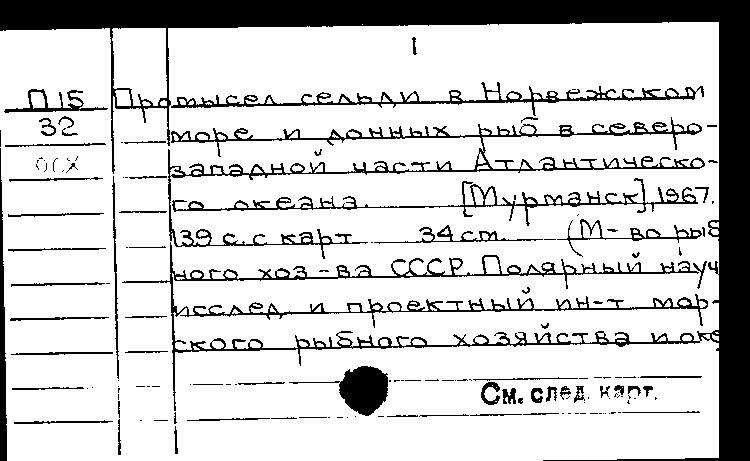 1
П15 Промысел сельди в Норвежском
32 море и донных рыб в северо-
осх западной части Атлантическо-
го океана. [Мурманск], 1967.
139 с. с карт 34 см. (М-во рыб
ного хоз-ва СССР. Полярный науч
исслед. и проектный ин-т мор-
ского рыбного хозяйства и оке
См. след. карт.